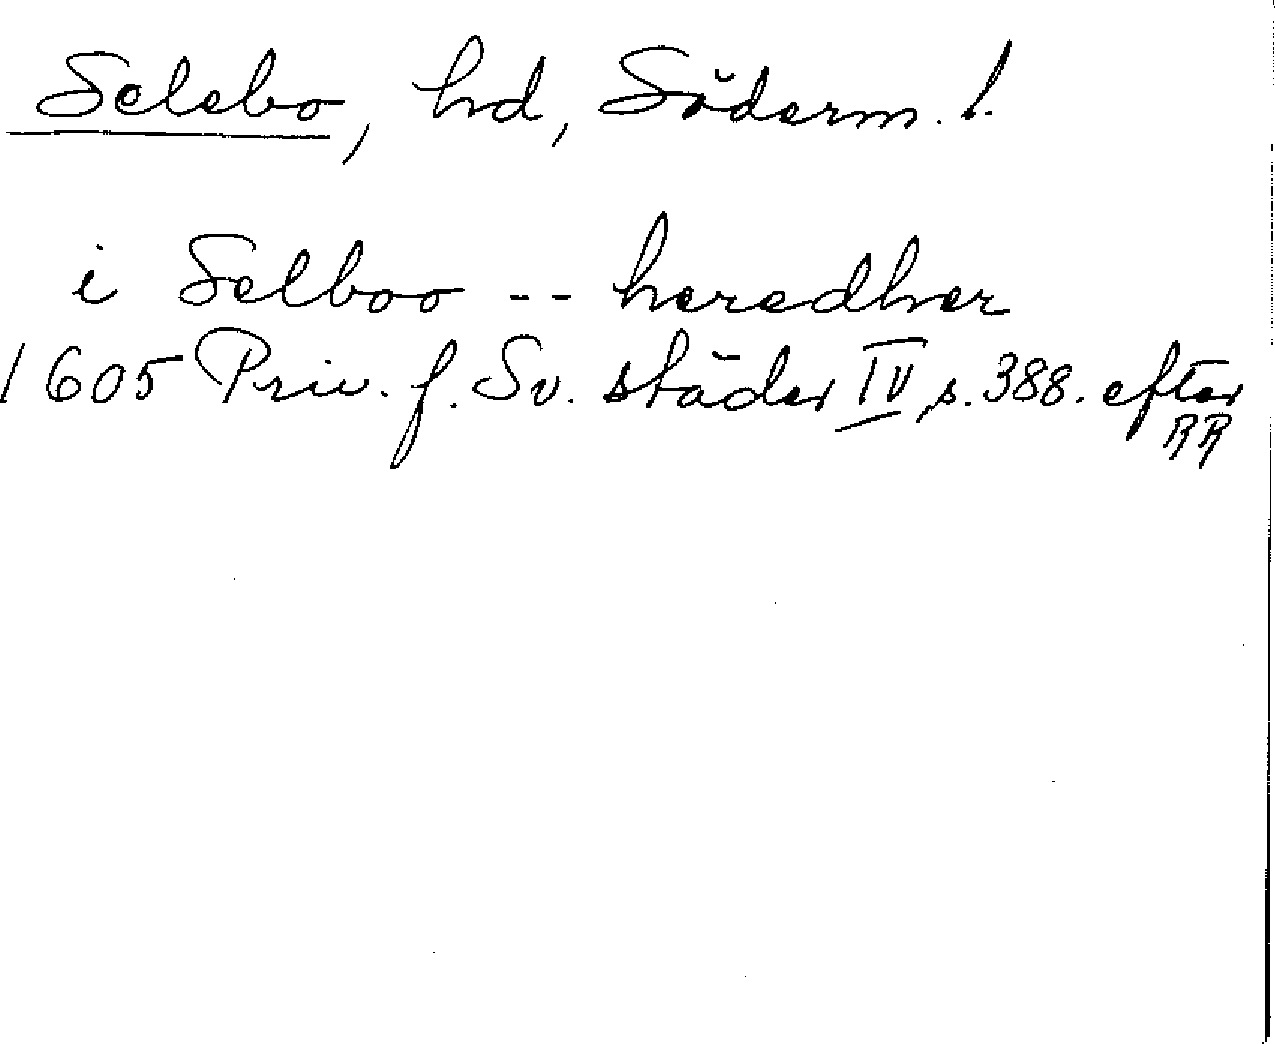 Selebo, hd, Söderm. l.
i Selboo -- heredher
1605 Priv. f. Sv. städer IV, s. 388. efter
RR